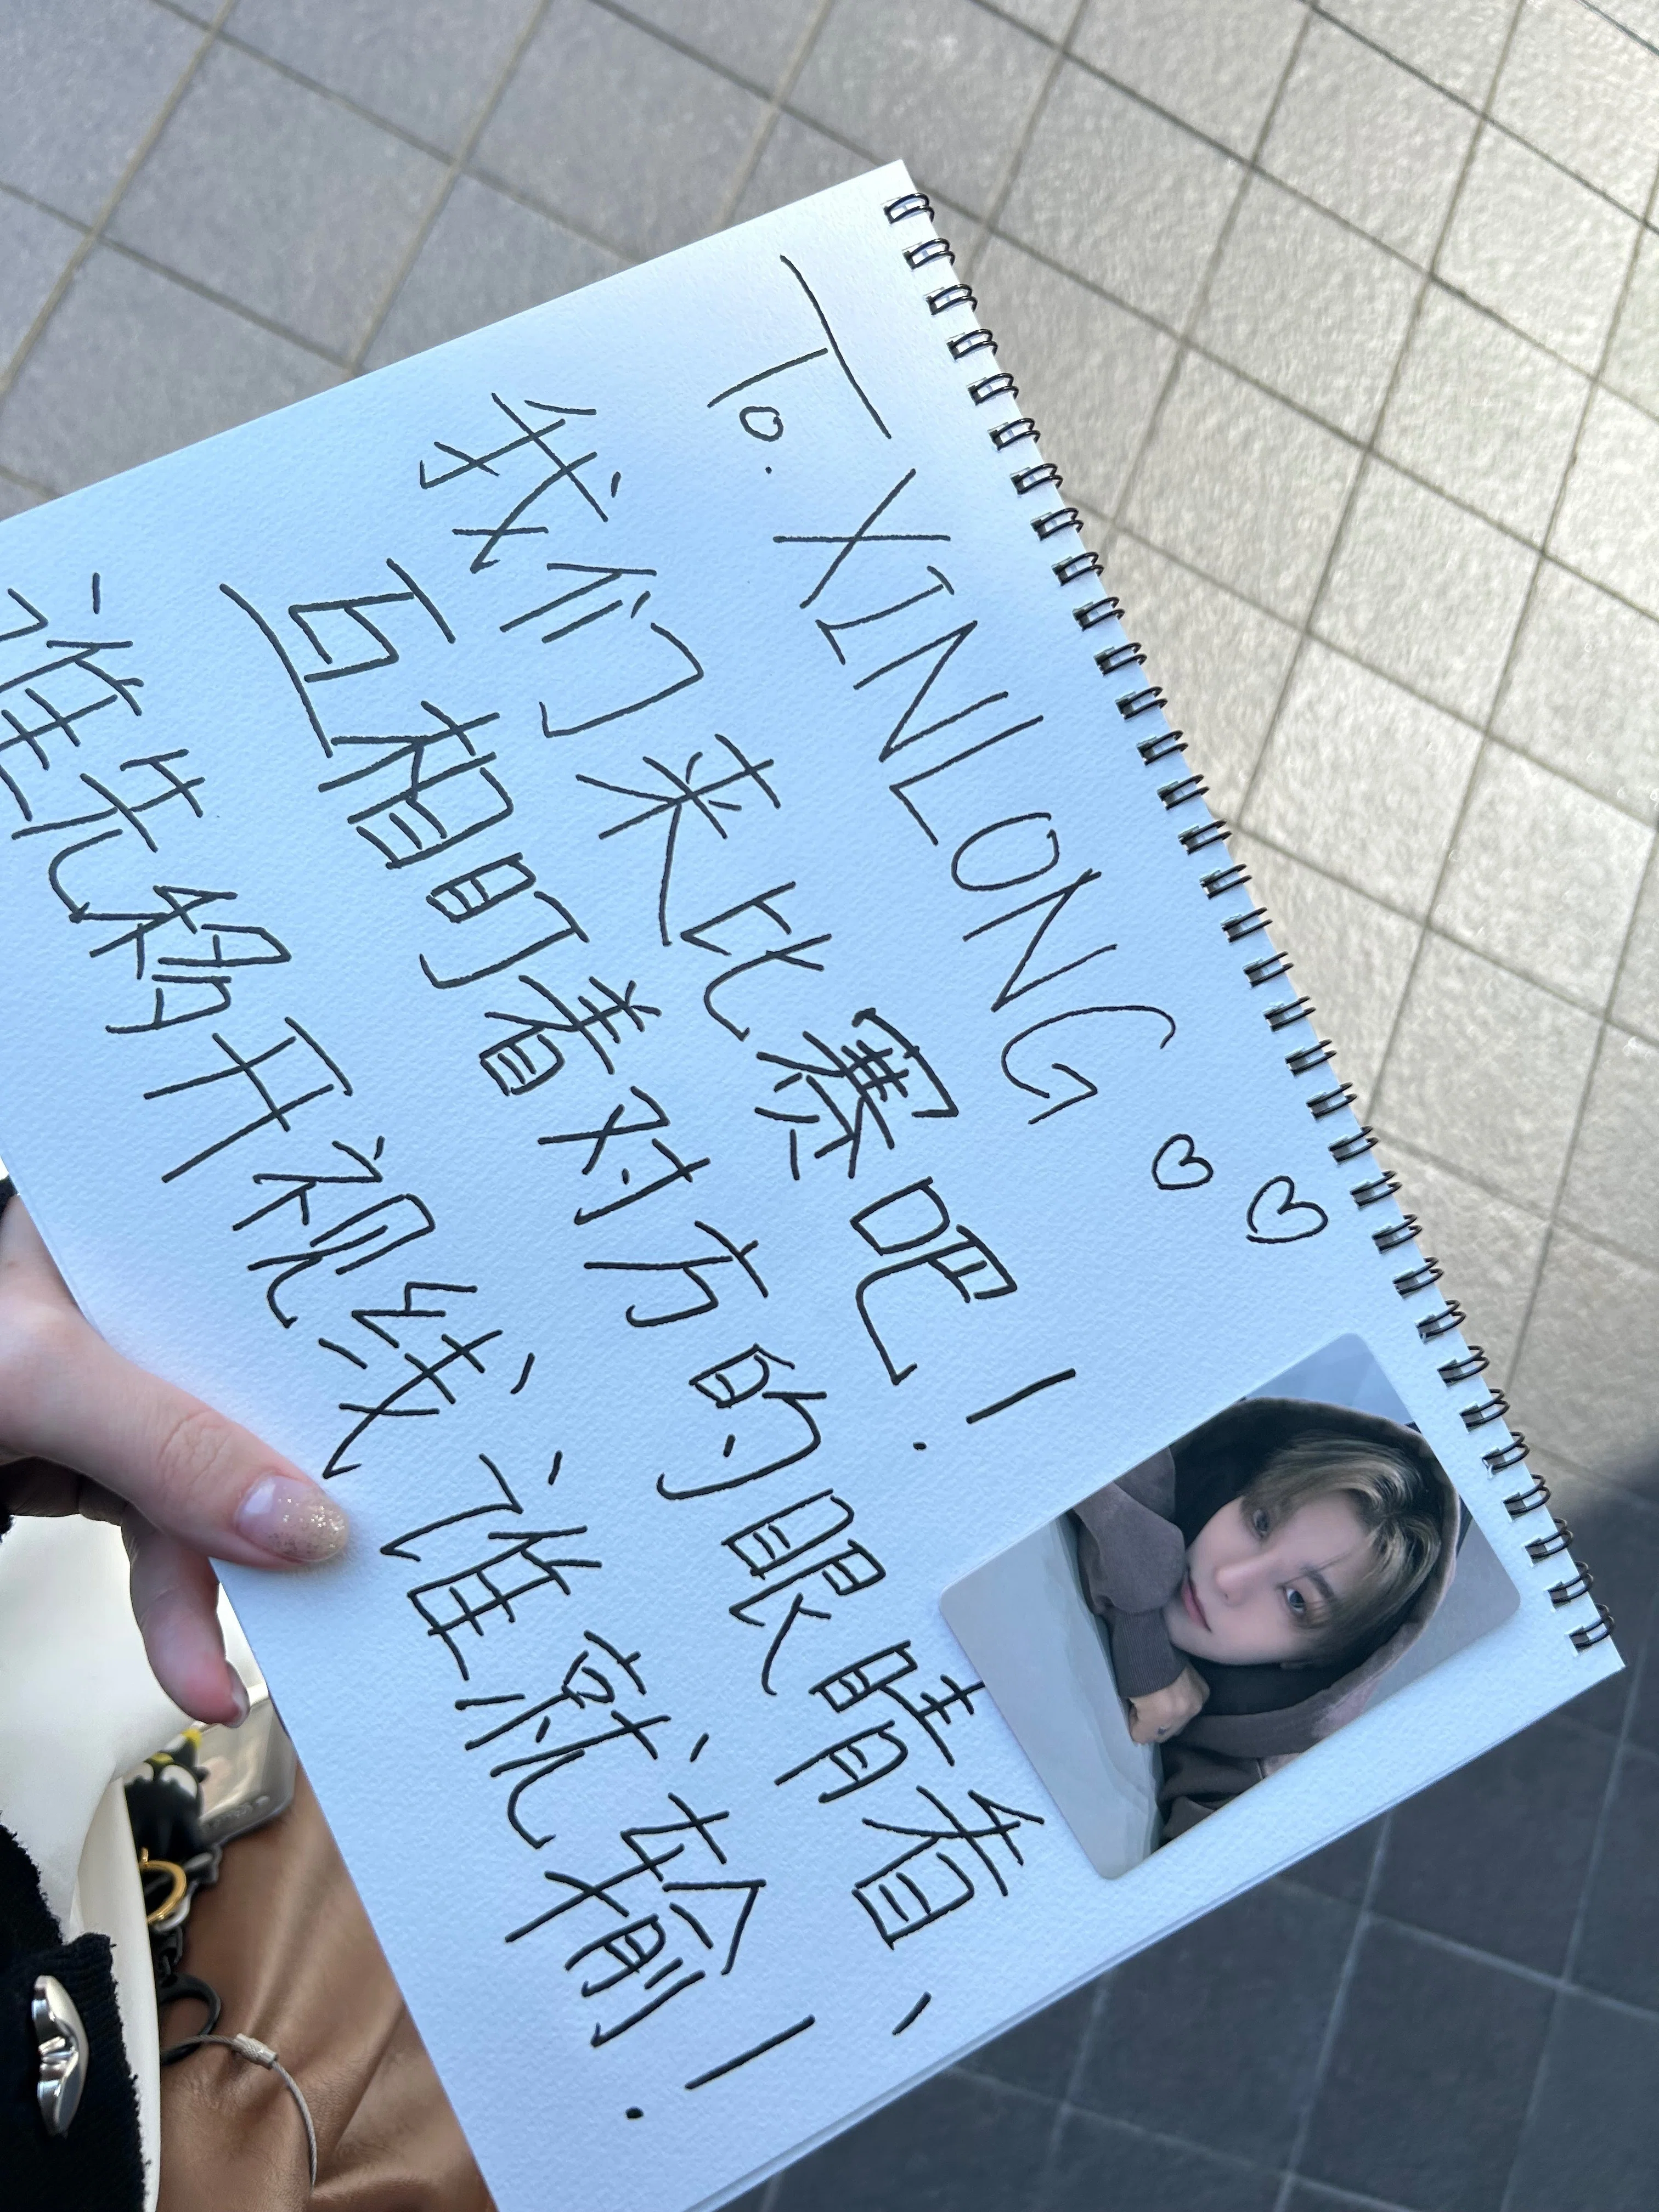 To. XINLONG ♡ ♡
我们来比赛吧！
互相盯着对方的眼睛看、
谁先挪开视线、谁就输！